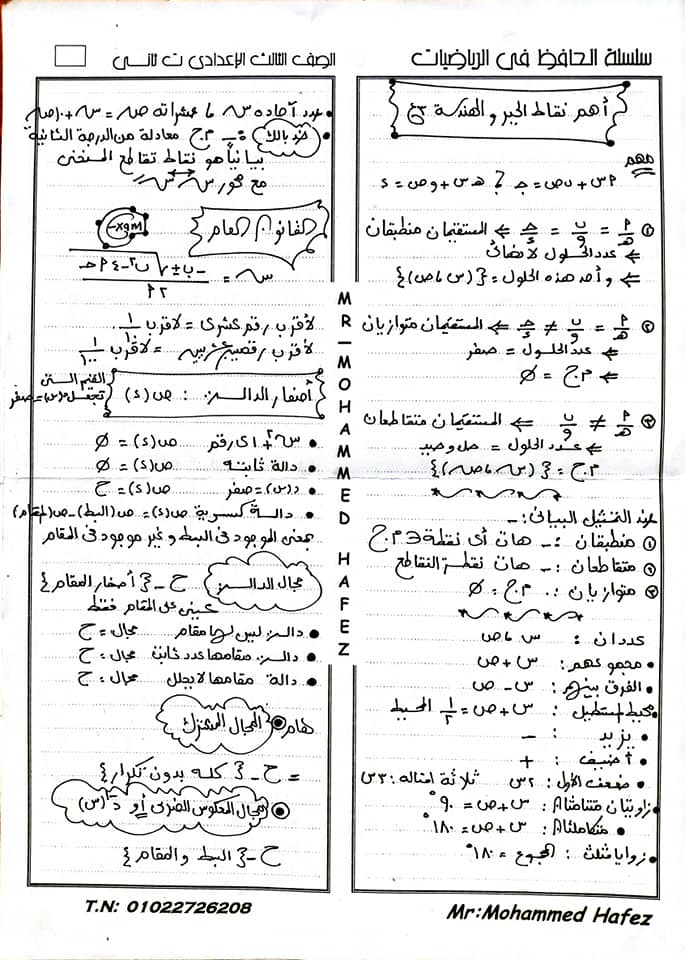 سلسلة الحافظ فى الرياضيات
الصف الثالث الإعدادى ت ثانى
أهم نقاط الجبر والهندسة ٣ع
مهم
٢س + ب ص = جـ ، هـ س + و ص = ء
① م/هـ = ب/و = جـ/ء ⇐ المستقيمان منطبقان
⇐ عدد الحلول لا نهائى
⇐ وأحد هذه الحلول = {(س ، ص)}
② م/هـ = ب/و ≠ جـ/ء ⇐ المستقيمان متوازيان
⇐ عدد الحلول = صفر
⇐ م.ح = Ø
③ م/هـ ≠ ب/و ⇐ المستقيمان متقاطعان
⇐ عدد الحلول = حل وحيد
م.ح = {(س ، ص)}
عند التمثيل البيانى :-
① منطبقان :- هات أى نقطة ∋ م.ح
② متقاطعان :- هات نقطة التقاطع
③ متوازيان :. م.ح = Ø
عددان : س ، ص
• مجموعهم : س + ص
• الفرق بينهم : س - ص
• محيط المستطيل : س + ص = ١/٢ المحيط
• يزيد : -
• أضيف : +
• ضعف الأول : ٢س ثلاثة أمثاله : ٣س
• زاويتان متتامتان : س + ص = ٩٠°
• متكاملتان : س + ص = ١٨٠°
• زوايا مثلث : المجموع = ١٨٠°
• عدد آحاده س ، عشراته ص = س + ١٠ص
• خد بالك :- م.ح معادلة من الدرجة الثانية
بيانياً هو نقاط تقاطع المنحنى
مع محور س س
القانون العام
س = (-ب ± √(ب² - ٤ م جـ)) / ٢م
لأقرب رقم عشرى = لأقرب ١/١٠
لأقرب رقمين عشريين = لأقرب ١/١٠٠
أصفار الدالة : ص(د)
القيم التى تجعل د(س) = صفر
• س² + أى رقم ص(د) = Ø
• دالة ثابتة ص(د) = Ø
• د(س) = صفر ص(د) = ح
• دالة كسرية ص(د) = ص(البسط) - ص(المقام)
بمعنى الموجود فى البسط وغير موجود فى المقام
مجال الدالة : ح - {أصفار المقام}
عينى على المقام فقط
• دالة ليس لها مقام مجال = ح
• دالة مقامها عدد ثابت مجال = ح
• دالة مقامها لا يحلل مجال = ح
هام المجال المشترك
= ح - {كله بدون تكرار}
المجال المعكوس الضربى أو د⁻¹(س)
ح - {البسط والمقام}
MR-MOHAMMED HAFEZ
T.N: 01022726208
Mr:Mohammed Hafez